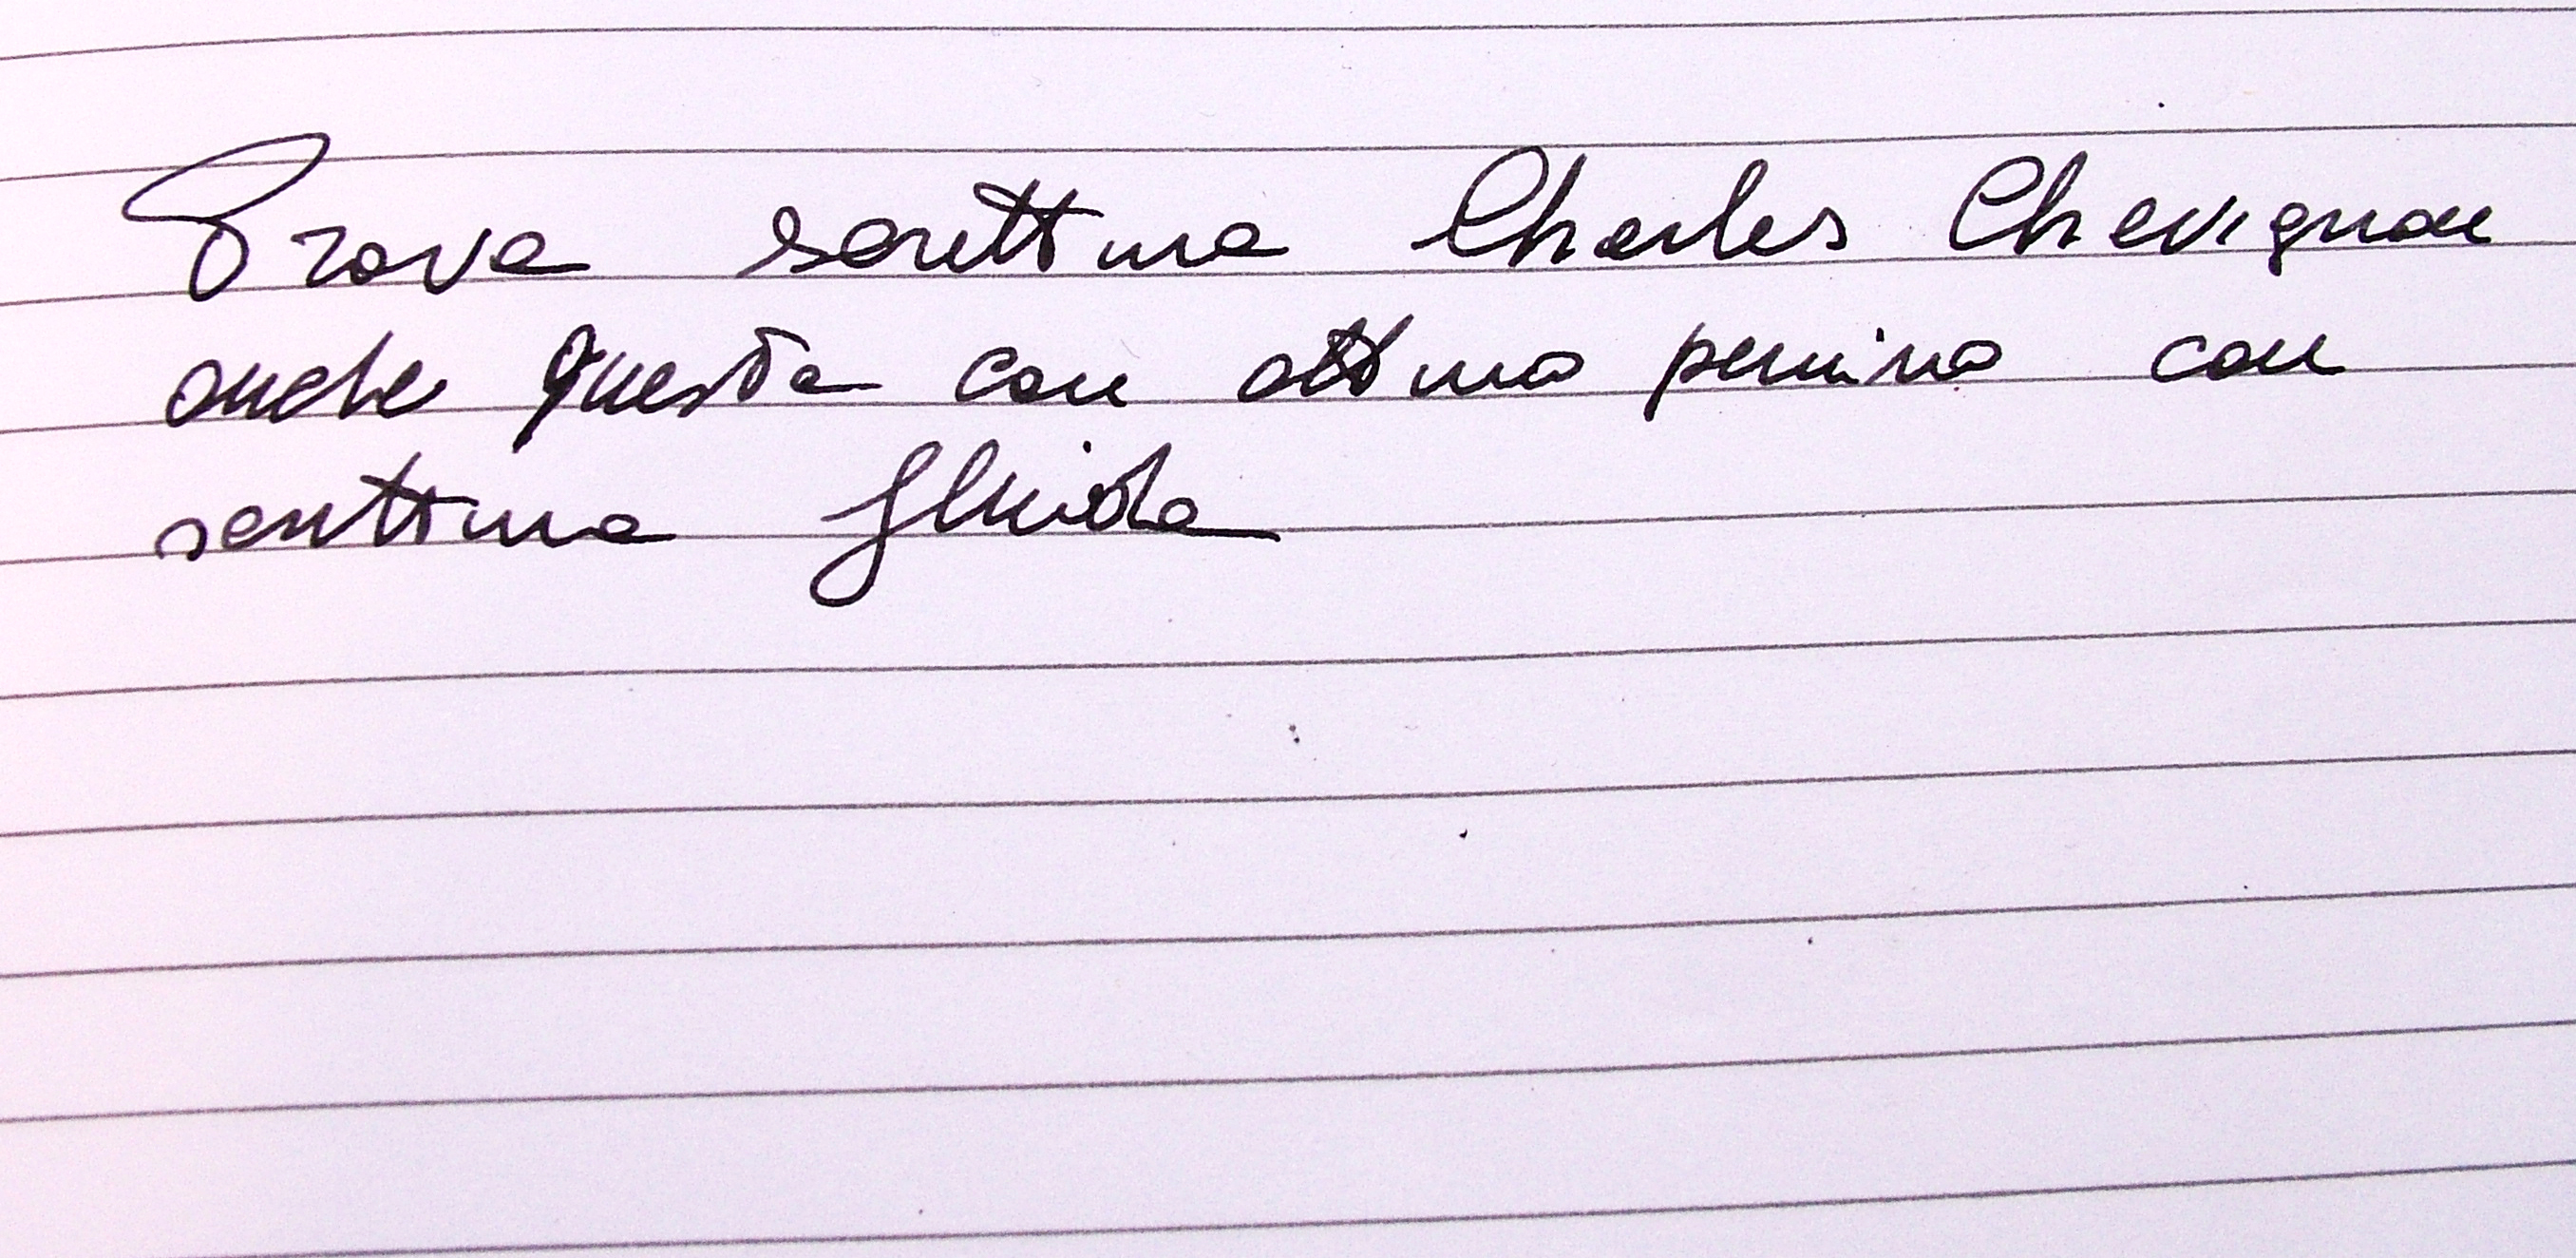 Prova scrittura Charles Chevignon
anche questa con ottimo pennino con
scrittura fluida